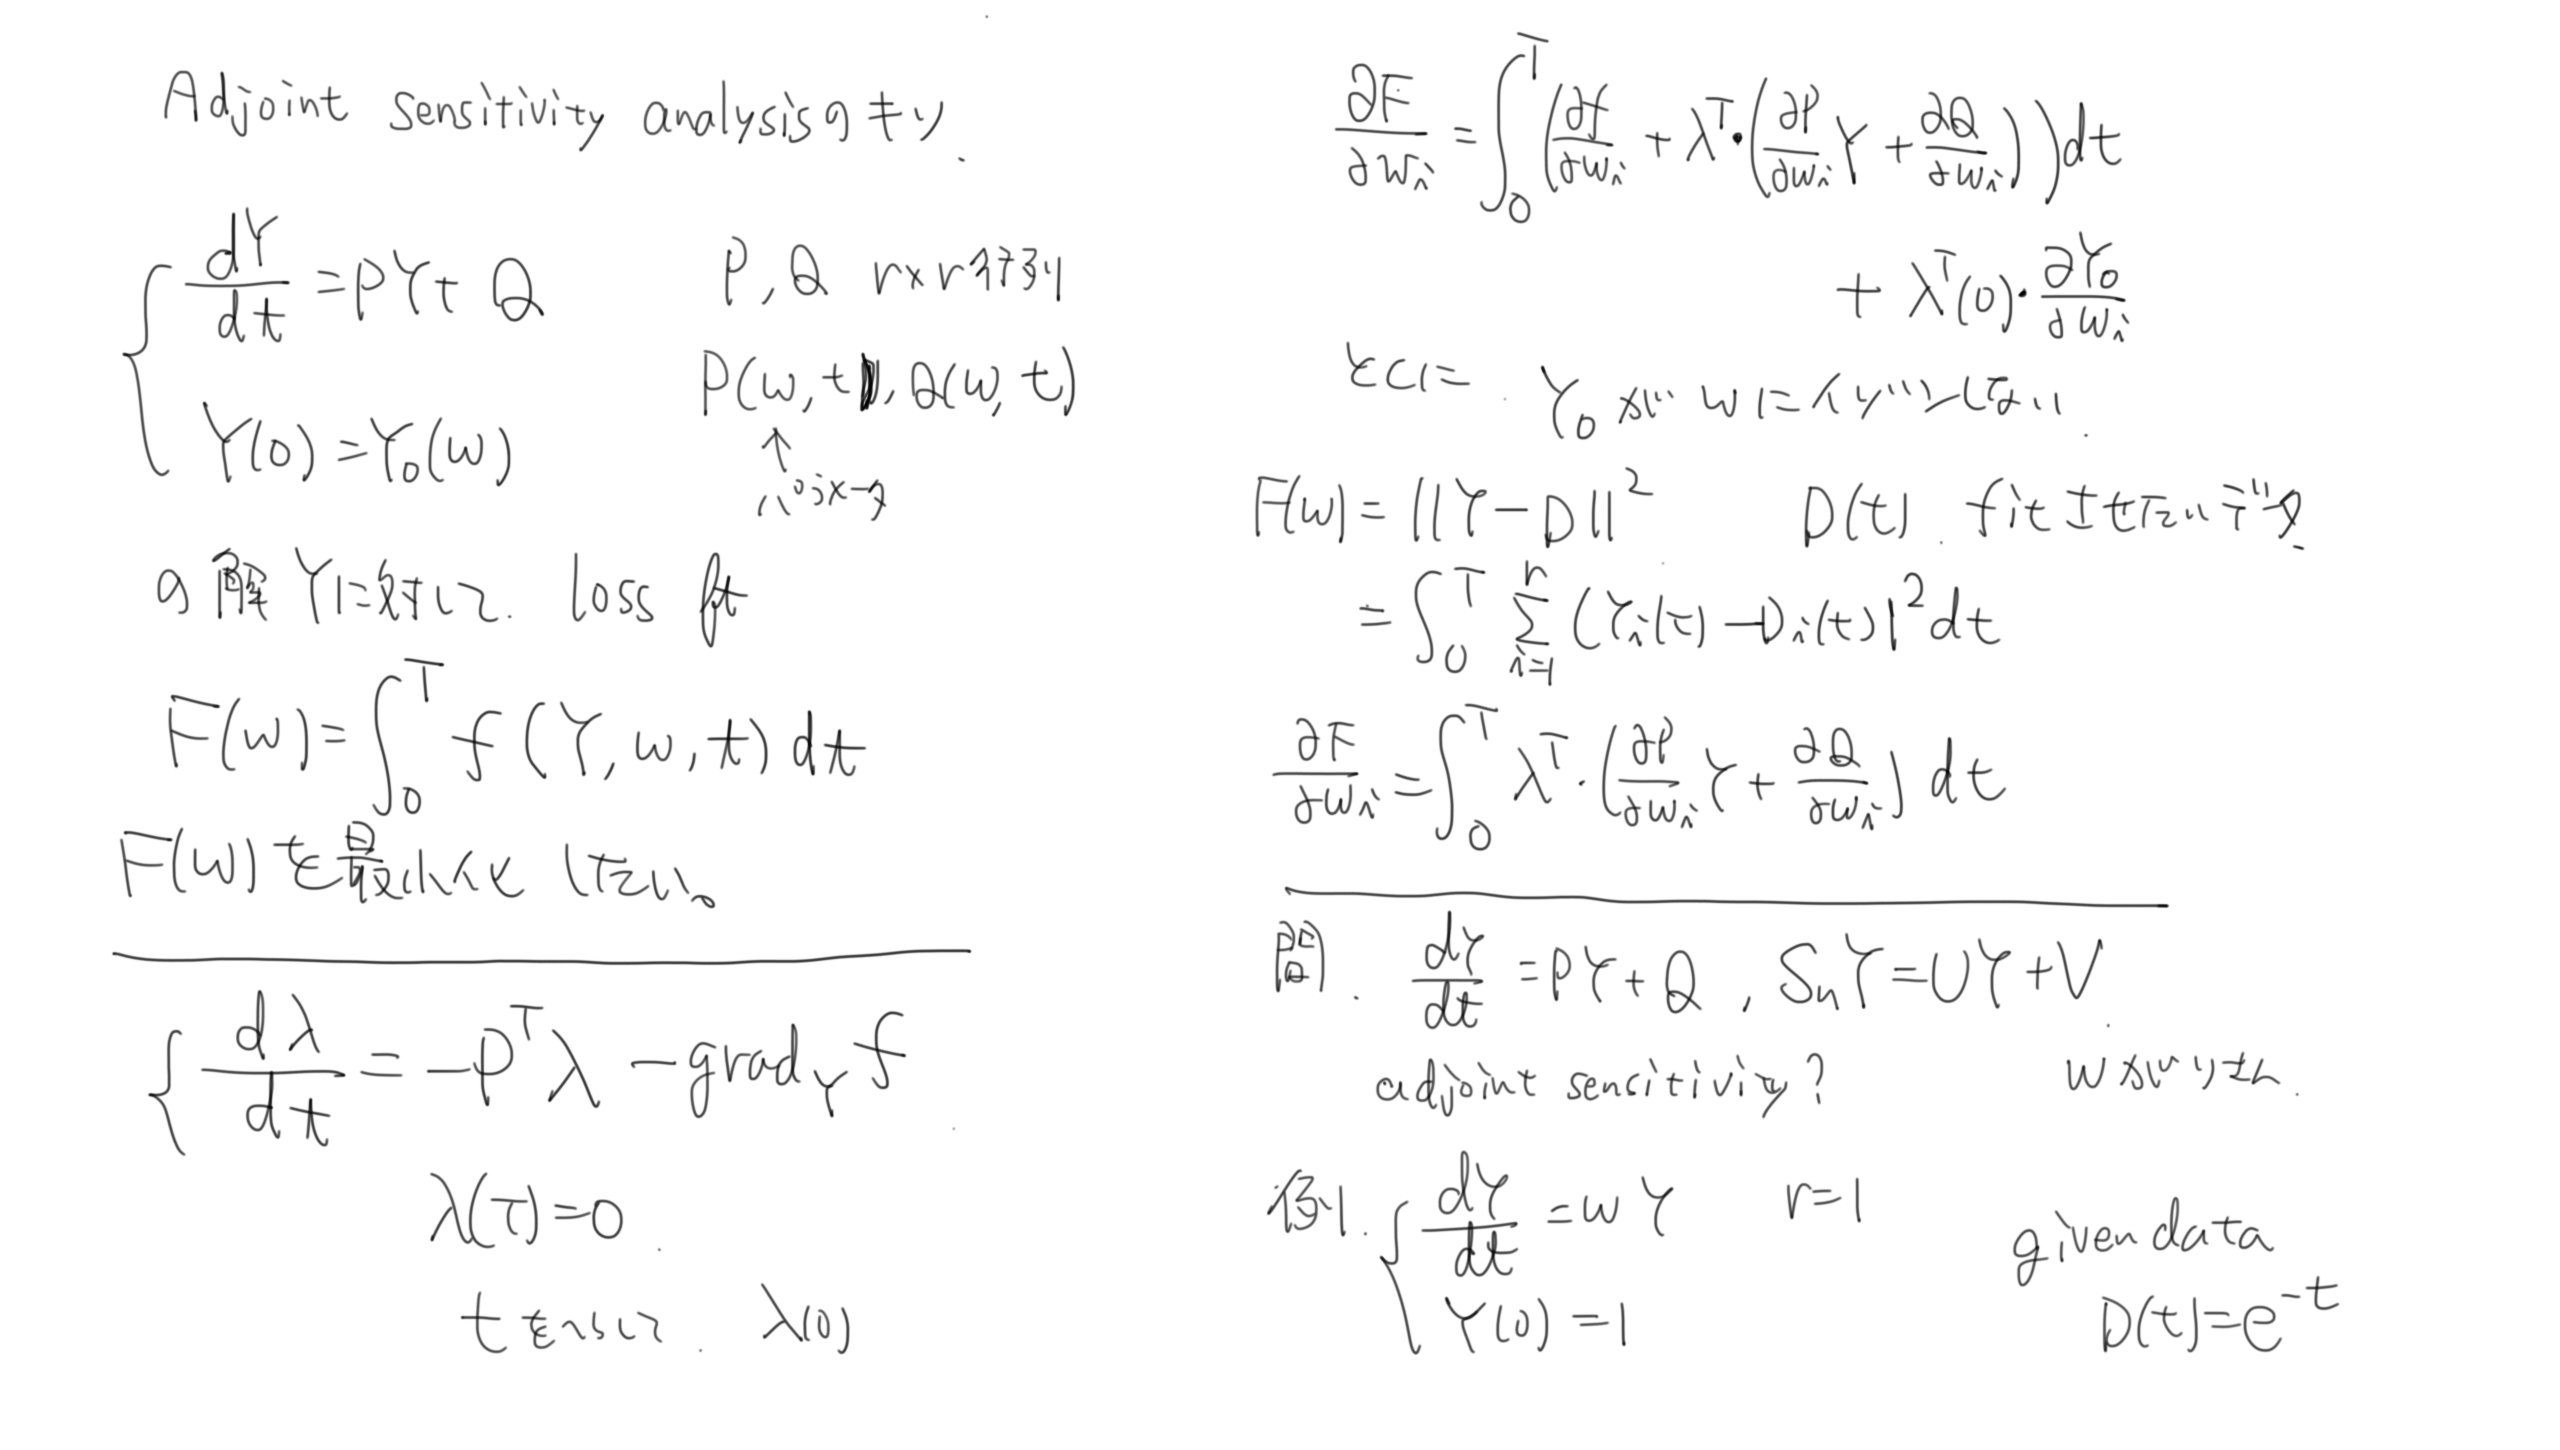 Adjoint sensitivity analysisのメモ.
dY/dt = PY + Q
P, Q r×r行列
P(w, t), Q(w, t)
Y(0) = Y₀(w)
↑
パラメータ
の解Yに対して. loss ft
F(w) = ∫₀ᵀ f(Y, w, t) dt
F(w)を最小化したい。
dλ/dt = -Pᵀλ - grad_Y f
λ(T) = 0
tをへらして λ(0)
∂F/∂wᵢ = ∫₀ᵀ (∂f/∂wᵢ + λᵀ·(∂P/∂wᵢ Y + ∂Q/∂wᵢ)) dt
+ λᵀ(0)·∂Y₀/∂wᵢ
とくに Y₀が wにイゾンしてない.
F(w) = ||Y - D||² D(t). fitさせたいデータ
= ∫₀ᵀ Σᵢ₌₁ʳ (Yᵢ(t) - Dᵢ(t))² dt
∂F/∂wᵢ = ∫₀ᵀ λᵀ·(∂P/∂wᵢ Y + ∂Q/∂wᵢ) dt
問. dY/dt = PY + Q, SₙY = UY + V.
adjoint sensitivity?
例. dY/dt = wY r=1
Y(0) = 1
given data
D(t) = e⁻ᵗ